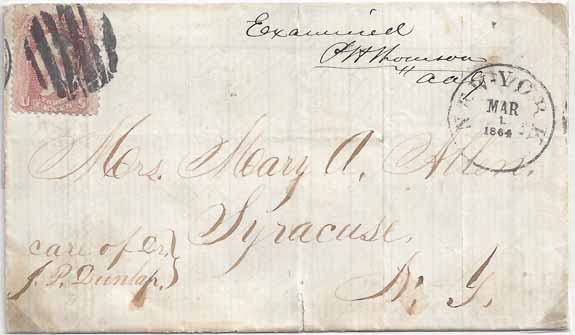 Examined
NEW-YORK
MAR
1
1864
Mrs. Mary A.
Syracuse,
N. Y.
care of Dr.
J. P. Dunlap.